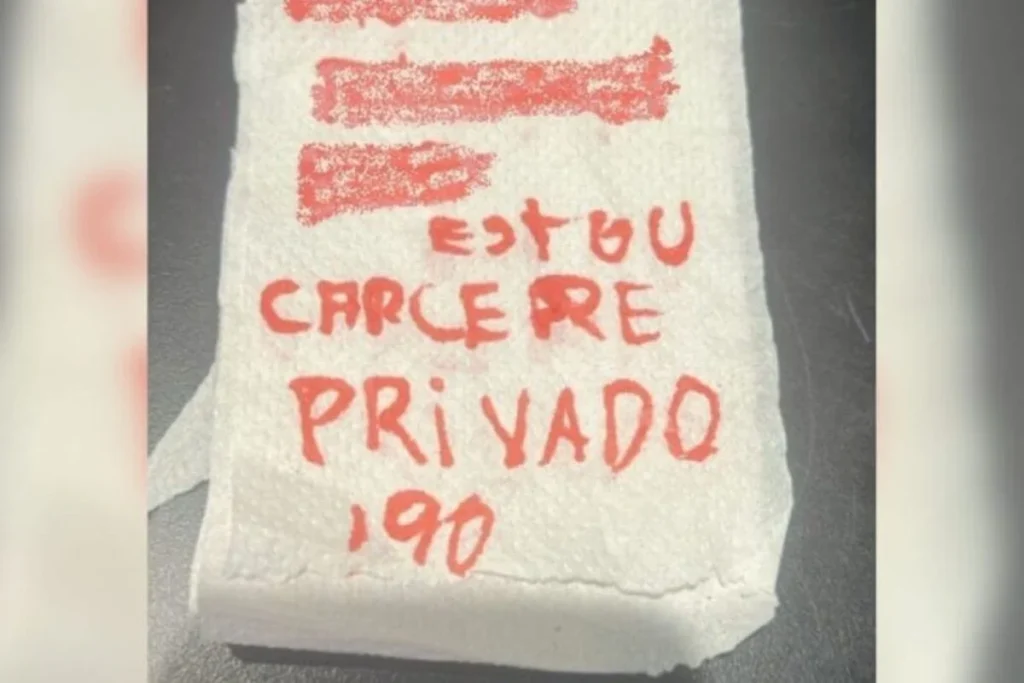 ESTOU
CARCERRE
PRIVADO
190